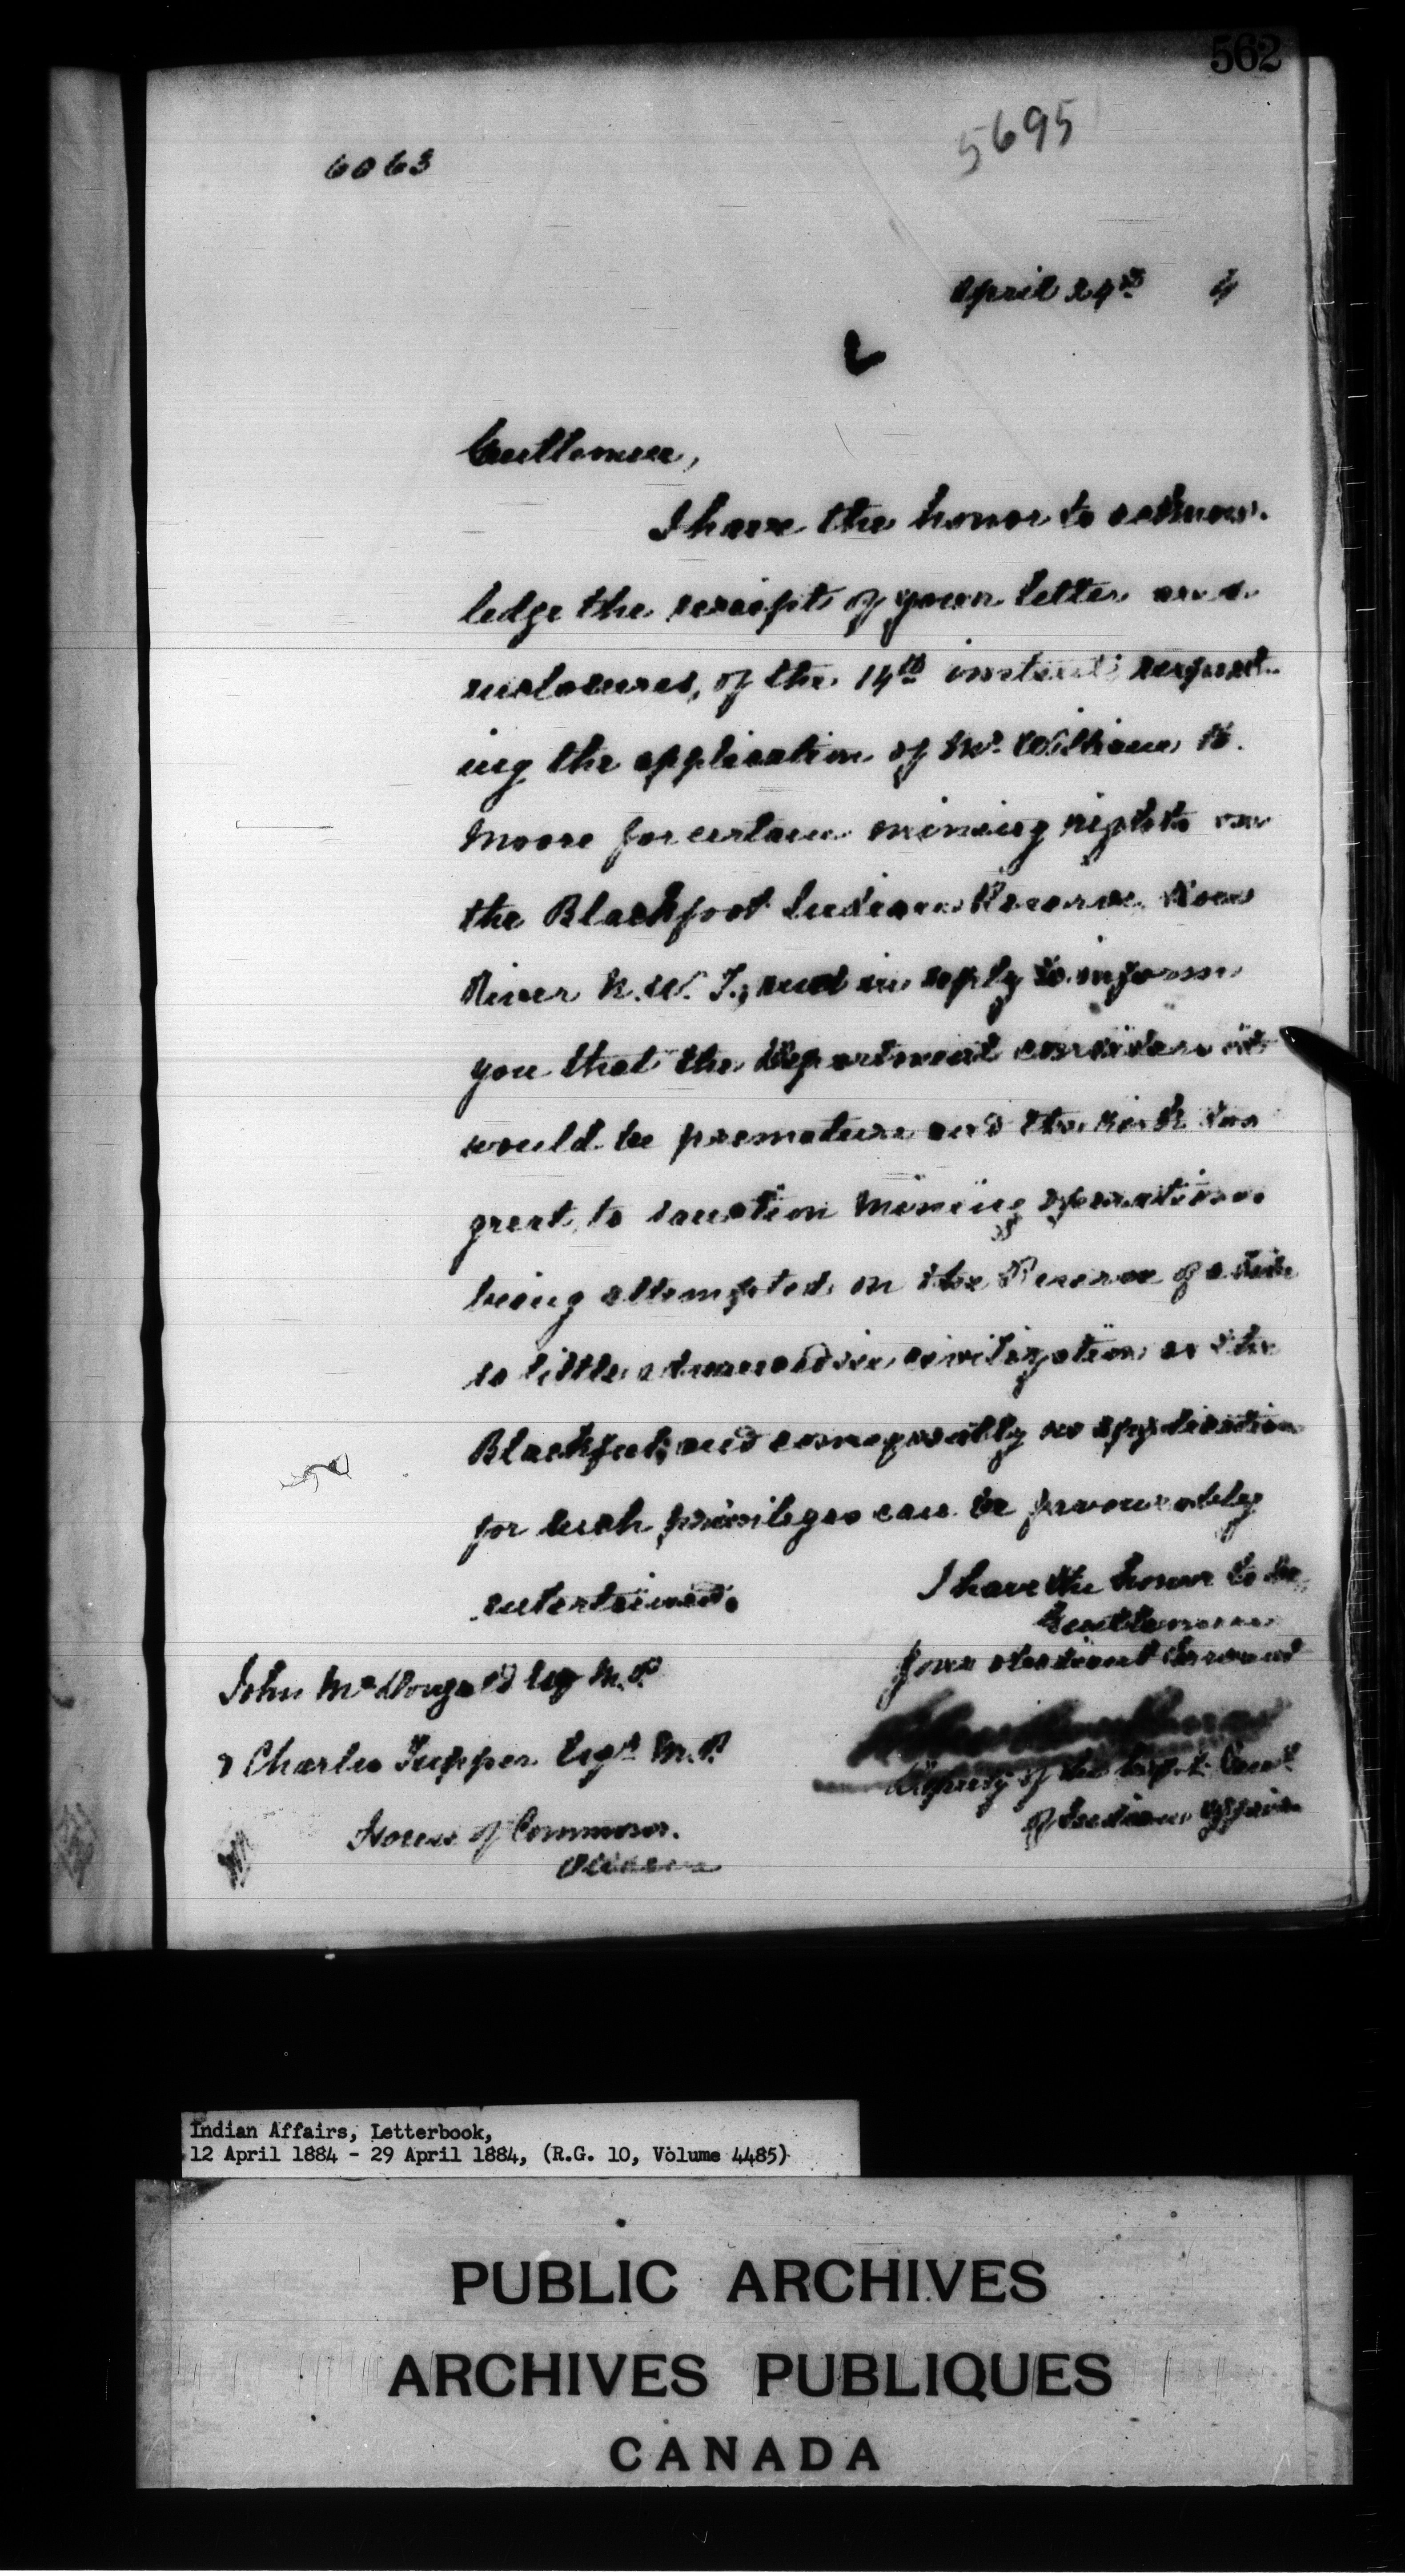 562
5695
6063
April 24th 4
Gentlemen,
I have the honor to acknow-
ledge the receipt of your letter and
enclosures, of the 14th instant, respect-
ing the application of Mr. William
Moore for certain mining rights on
the Blackfoot Indian Reserve, Bow
River N.W.T., and in reply to inform
you that the Department considers it
would be premature and the risk too
great, to sanction mining operations
being attempted on the Reserve of a tribe
so little advanced in civilization as the
Blackfeet; and consequently no application
for such privileges can be favourably
entertained.
I have the honor to be,
Gentlemen
Your obedient Servant
John McDougald Esq M.P.
& Charles Tupper Esqr M.P.
House of Commons.
Ottawa
Deputy of the Supt. Genl.
of Indian Affairs
Indian Affairs, Letterbook,
12 April 1884 - 29 April 1884, (R.G. 10, Volume 4485)
PUBLIC ARCHIVES
ARCHIVES PUBLIQUES
CANADA